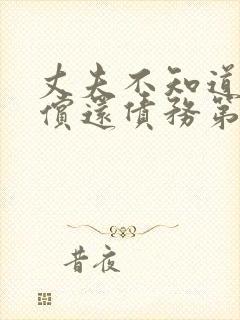 丈夫不知道
償還債務第
昔夜